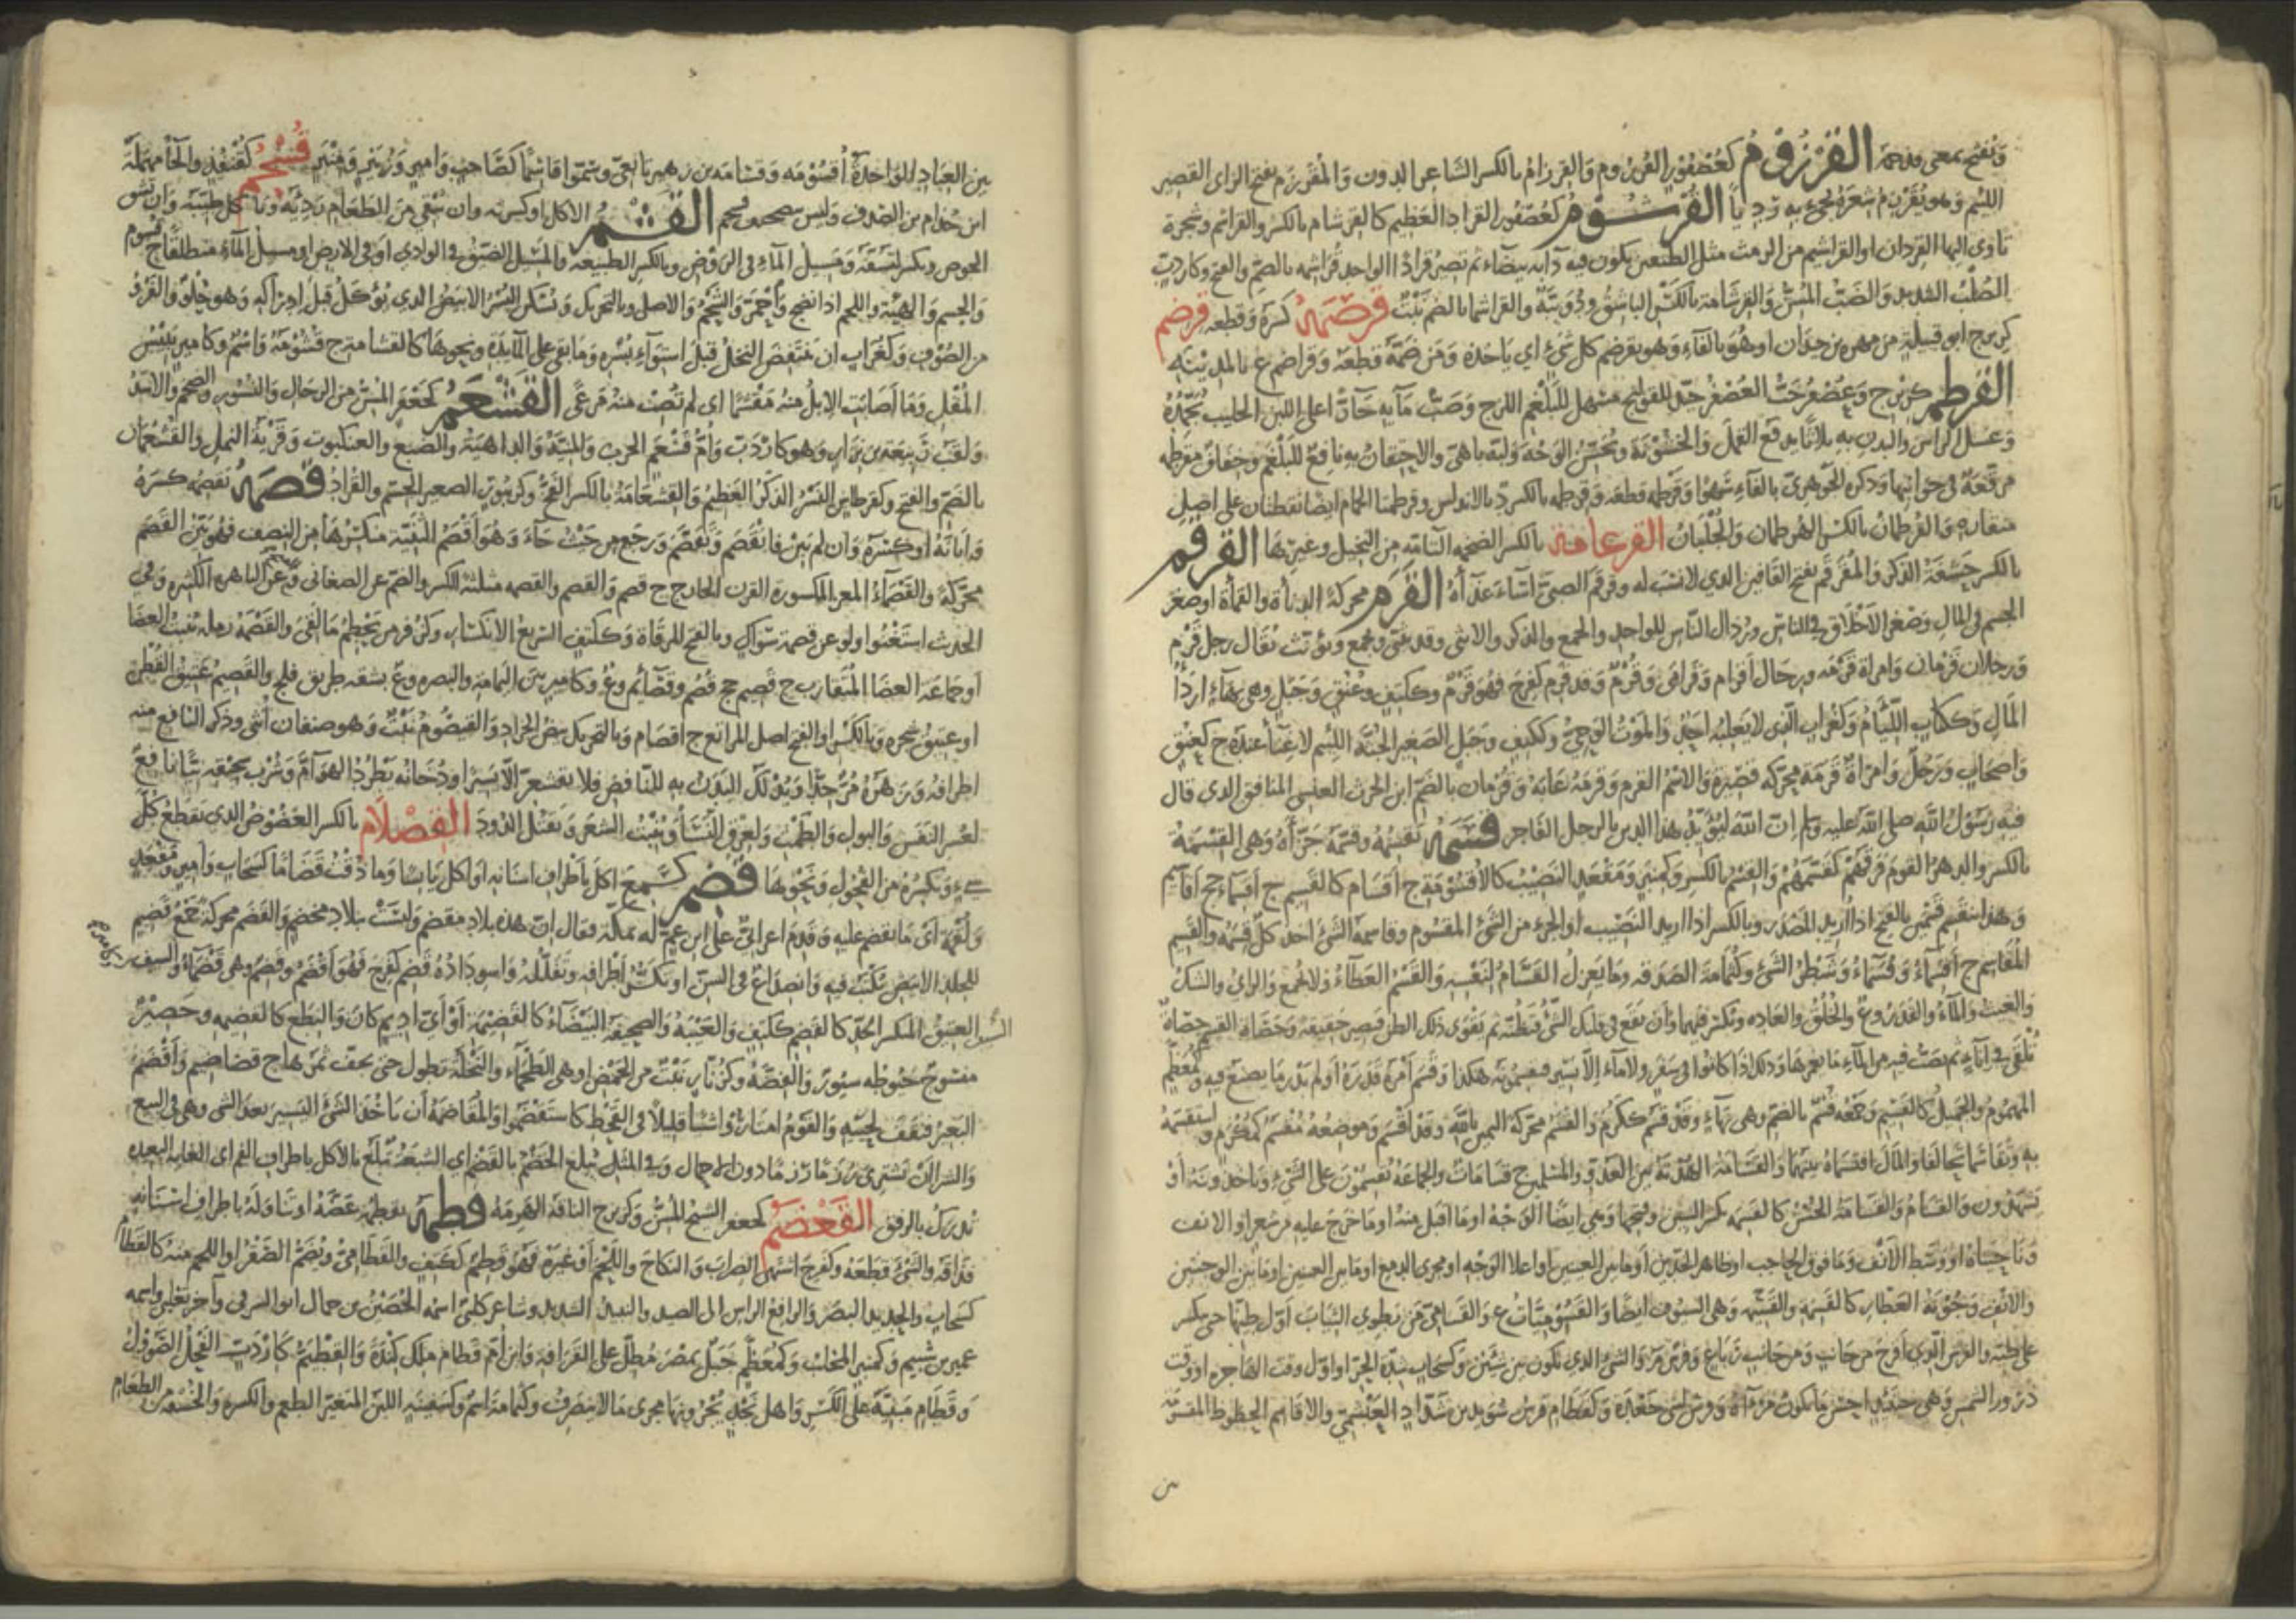 وتفتح بمعى مقدمه الفرزوم كعصفور القرزوم والقرزام بالكسر الشاعر الدون والمقرزم بفتح الزاى القصير
اللئيم وهو يقرزم شعره يجىء به رديا القرشوم كعصفور القراد العظيم كالقرشام بالكسر والقراشم وشجرة
تاوى اليها القردان او القراشيم من الرمث مثل الطنعس يكون فيه دابه بيضاء ثم تصير قرادا الواحد قراشمه بالضم والفتح وكاردب
الصلب الشديد والضب المسن والقرشامة بالكسر الباشق ودويبة والقراشما بالضم نبت قرصمه كسره وقطعه قرضم
كزبرج ابو قبيلة من مهره بن حيدان او هو بالفاء وهو يقرضم كل شىء اى ياخذه وقرضمه قطعه وقراضم ع بالمدينه
القرطم كزبرج وعصفر حب العصفر جيد للقولنج مسهل للبلغم اللزج وصب مآيه حارا على اللبن الحليب يجمده
وغسل الراس والبدن به ثلاثا يدفع القمل والخشونة ويحسن الوجه ولبه باهى والاحتقان به نافع للبلغم وخفاف مقرطمه
مرقعة فى جوانبها وذكره الجوهرى بالفاء سهوا وقرطمه قطعه وقرطمه بالكسر د بالاندلس وقرطمتا الحمام ايضا نقطتان على اصل
منقاره والقرطمان بالكسر الهرطمان والجلبان القرعامة بالكسر الضخمه التامه من النخيل وغيرها القرقم
بالكسر حشفة الذكر والمقرقم بفتح القافين الذى لا يشب له وقرقم الصبى اساء غذاه القزم محركة الدناة والقماة او صغر
الجسم فى المال وصغر الاخلاق فى الناس ورذال الناس للواحد والجمع والذكر والانثى وقد يثنى ويجمع ويؤنث يقال رجل قزم
ورجلان قزمان وامراة قزمه ورجال اقزام وقزامى وقزم وقد قزم كفرح فهو قزم وككتف وعنق وجبل وهى بهاء اردا
المال وككتاب اللئام وكغراب الذى لا يغلبه احد والموت الوحى وككتف وجبل الصغير الجثة اللئيم لا غناء عنده ج كعنق
واصحاب ورجل وامراة قزمة محركه قصيرة والاسم القزم وقزمه عابه وقزمان بالضم ابن الحرث العبسى المنافق الذى قال
فيه رسول الله صلى الله عليه وسلم ان الله ليؤيد هذا الدين بالرجل الفاجر قسمه يقسمه وقسمه جزاه وهى القسمة
بالكسر والدهر القوم فرقهم كقسمهم والقسم بالكسر وكمنبر ومقعد النصيب كالاقسومة ج اقسام كالقسيم ج اقسماء جج اقاسيم
وهذا ينقسم قسمين بالفتح اذا اريد المصدر وبالكسر اذا اريد النصيب او الجزء من الشىء المقسوم وقاسمه الشىء اخذ كل قسمه والقسيم
المقاسم ج اقسماء وقسماء وشطر الشىء وكثمامة الصدقه وما يعزل القسام لنفسه والقسم العطاء ولا يجمع والراى والشك
والغيث والماء والقدر وع والخلق والعاده وتكسر فيهما وان يقع فى قلبك الشىء فتظنه ثم يقوى ذلك الظن فيصير حقيقة وحصاة القسم حصاة
تلقى فى اناء ثم يصب فيه من الماء ما يغمرها وذلك اذا كانوا فى سفر ولا ماء الا يسير فيقسمونه هكذا وقسم امره قدره او لم يدر ما يصنع فيه وكمعظم
المهموم والجميل كالقسيم وجمعه قسم بالضم وهى بهاء وقد قسم ككرم والقسم محركة اليمين بالله وقد اقسم وموضعه مقسم كمكرم واستقسمه
به وتقاسما تحالفا والمال اقتسماه بينهما والقسامة الهدنة بين العدو والمسلمين ج قسامات والجماعة يقسمون على الشىء وياخذونه او
يشهدون والقسام والقسامة الحسن كالقسمه بكسر السين وفتحها وهى ايضا الوجه او ما اقبل منه او ما خرج عليه من شعر او الانف
وناحيتاه او وسط الانف وما فوق الحاجب او ظاهر الخدين او ما بين العينين او اعلا الوجه او مجرى الدمع او ما بين العينين او ما بين الوجنتين
والانف وجونة العطار كالقسيمة والقسمه وهى السوق ايضا والقسوميات ع والقسامى من يطوى الثياب اول طيها حتى يكسر
على طيه والفرس الذى اقرح من جانب ومن جانب رباع وفرس م والشىء الذى يكون بين شيئين وكسحاب شدة الحر او اول وقت الهاجره او وقت
ذرور الشمس وهى حينئذ احسن ما تكون مرآة وفرس لبنى جعدة وكقطام فرس سويد بن شداد العبشمى والاقاسيم الحظوظ المقسومة
بين
بين العباد الواحدة اقسومه وقسامه بن زهير تابعى وسموا قاسما كصاحب وامير وزبير ومنبر قسحم كقنفذ والحاء مهملة
ابن جذام بن الصدف وليس بتصحيف قحم القشم الاكل او كثرته وان تنقى من الطعام رديه وتاكل طيبه وان تشق
الخوص وبكسر لتسفه ومسيل الماء فى الروض وبالكسر الطبيعه والمسيل الضيق فى الوادى او فى الارض او مسيل الماء مطلقا ج قشوم
والجسم والهيئة واللحم اذا نضج واحمر والشحم والاصل وبالتحريك وتسكن البسر الابيض الذى يؤكل قبل ادراكه وهو حلو والقرد
من الصوف وكغراب ان ينتفض النخل قبل استواء بسره وما بقى على المائدة ونحوها كالقشامة ج قشومه واسم وكامير يبيس
المقل وما اصابت الابل منه مقشما اى لم تصب منه مرعى القشعم كجعفر المسن من الرجال والنسور والضخم والاسد
ولقب ربيعة بن نزار وهو كاردب وام قشعم الحرب والمنية والداهية والضبع والعنكبوت وقرية النمل والقشعمان
بالضم والفتح وكقرطاس النسر الذكر العظيم والقشعامة بالكسر الفخ وكزنبور الصغير الجسم والقراد قصمه يقصمه كسره
وابانه او كسره وان لم يبن فانقصم وتقصم ورجع من حيث جاء وهو اقصم الثنية منكسرها من النصف فهو بين القصم
محركة والقصماء المعز المكسورة القرن الخارج ج قصم والقصم والقصمه مثلثة الكسر والضم عن الصغانى عن الباهر الكسره وفى
الحديث استغنوا ولو عن قصمة سواك وبالفتح المرقاة وككتف السريع الانكسار وكزفر من يحطم ما لقى والقصيمة رملة تنبت الغضا
او جماعة الغضا المتقارب ج قصيم جج قصم وقصائم وع وكامير بين اليمامة والبصره وع يشقه طريق فلج والقصيم عتيق القطن
او عتيق شجره وبالكسر او الفتح اصل المراتع ج اقصام وبالتحريك بيض الجراد والقيصوم نبت وهو صنفان انثى وذكر النافع منه
اطرافه وزهره مر جدا ويدلك البدن به للنافض فلا يقشعر الا يسيرا ودخانه يطرد الهوام وشرب سحيقه نيا نافع
لعسر النفس والبول والطمث ولعرق النسا وينبت الشعر ويقتل الدود القصلام بالكسر العضوض الذى يقطع كل
شىء ويكسره من الفحول ونحوها قضم كسمع اكل باطراف اسنانه او اكل يابسا وما ذقت قضاما كسحاب وامير ومقعد
ولقمة اى ما يقضم عليه وقدم اعرابى على ابن عم له بمكة فقال ان هذه بلاد مقضم وليست بلاد مخضم والقضم محركة جمع قضيم
للجلد الابيض يكتب فيه وانصداع فى السن او تكسر اطرافه وتفلله واسوداده قضم كفرح فهو اقضم وقضم وهى قضماء والسيف
العتيق المتكسر الحد كالقضم ككتف والعيبة والصحيفة البيضاء كالقضيمة او اى اديم كان والنطع كالقضيمه وحصير
منسوج خيوطه سيور والفضة وكزنار نبت من الحمض او هى الطحماء والنخلة تطول حتى يخف ثمرها ج قضاضيم واقضم
البعير قفقف لحييه والقوم امتاروا شيئا قليلا فى القحط كاستقضموا والمقاضمة ان ياخذ الشىء اليسير بعد الشىء وهى فى البيع
والشرا ان تشترى رزما رزما دون الاحمال وفى المثل يبلغ الخضم بالقضم اى الشبعة تبلغ بالاكل باطراف الفم اى الغاية البعيده
تدرك بالرفق القعضم كجعفر الشيخ المسن وكزبرج الناقة الهرمة قطمه يقطمه عضه او تناوله باطراف اسنانه
فذاقه والشىء قطعه وكفرح اشتهى الضراب والنكاح واللحم او غيره فهو قطم ككتف والقطامى ويضم الصقر او اللحم منه كالقطام
كسحاب والحديد البصر والرافع الراس الى الصيد والنبيذ الشديد وشاعر كلبى اسمه الحصين بن حمال ابو الشرقى وآخر تغلبى واسمه
عمير بن شييم وكمنبر المخلب وكمعظم جبل بمصر مطل على القرافة وابن ام قطام ملك كندة والقطيم كاردب الفحل الصؤول
وقطام مبنية على الكسر واهل نجد يجرونها مجرى ما لا ينصرف وكثمامة اسم وكسفينه اللبن المتغير الطعم والكسره والحسيفه من الطعام